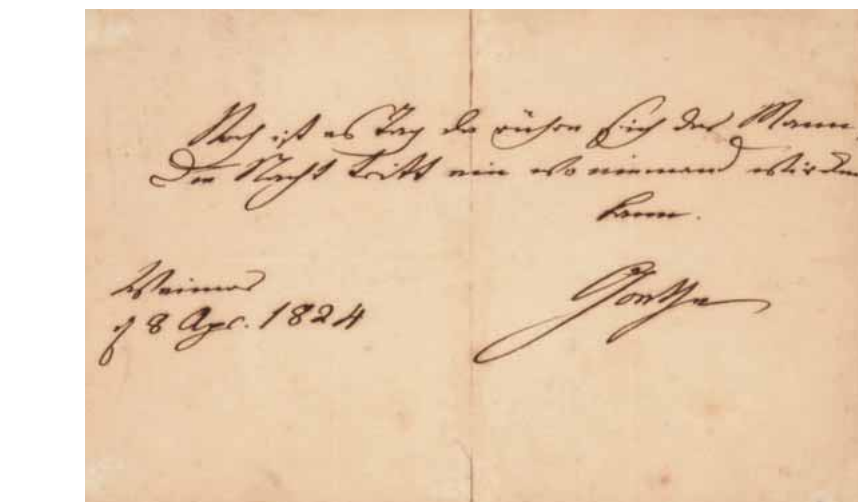 Noch ist es Tag da rühre sich der Mann,
Die Nacht tritt ein wo niemand wircken
kann.
Weimar
d 8 Apr. 1824
Goethe